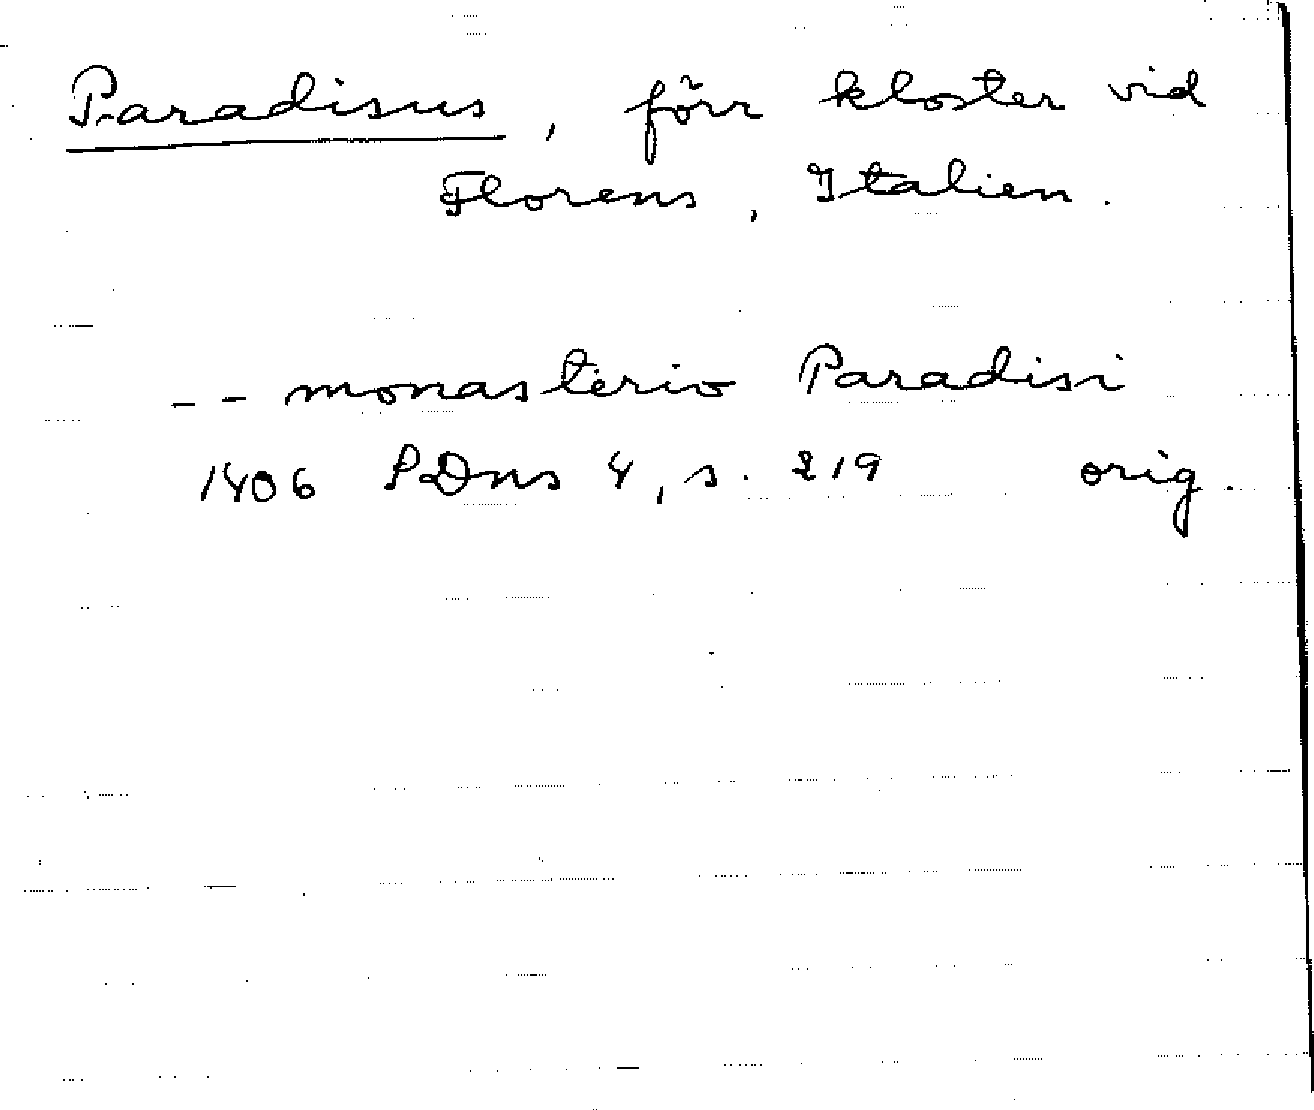 Paradisus, förr kloster vid
Florens, Italien.
-- monasterio Paradisi
1406 SDns 4, s. 219 orig.